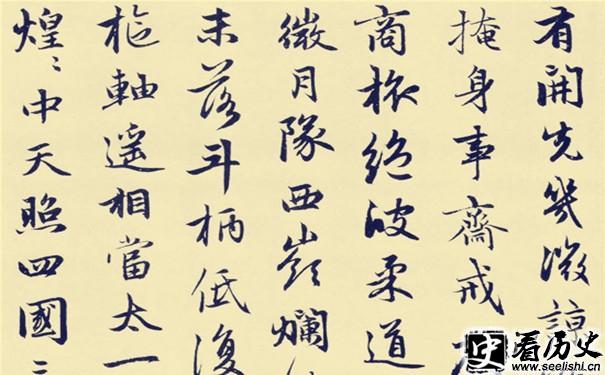 有開先幾微諒
掩身事齋戒
商旅絕彼柔道
微月隊西嶺爛
未落斗柄低復
樞軸遥相當太一
煌〻中天照四國
史 看历史
www.seelishi.cn